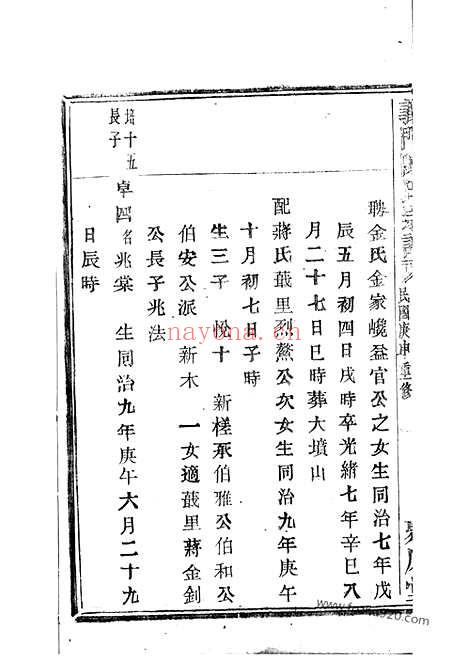 民國庚申重修
聘金氏金家㠗益官公之女生同治七年戊
辰五月初四日戌時卒光緒七年辛巳八
月二十七日巳時葬大墳山
配蔣氏蕺里烈鰲公次女生同治九年庚午
十月初七日子時
生三子 松十 新槎承伯雅公伯和公
伯安公派 新木 一女適蕺里蔣金釗
公長子兆法
培十五
長子
卓四名兆棠 生同治九年庚午六月二十九
日辰時
nayona.cn